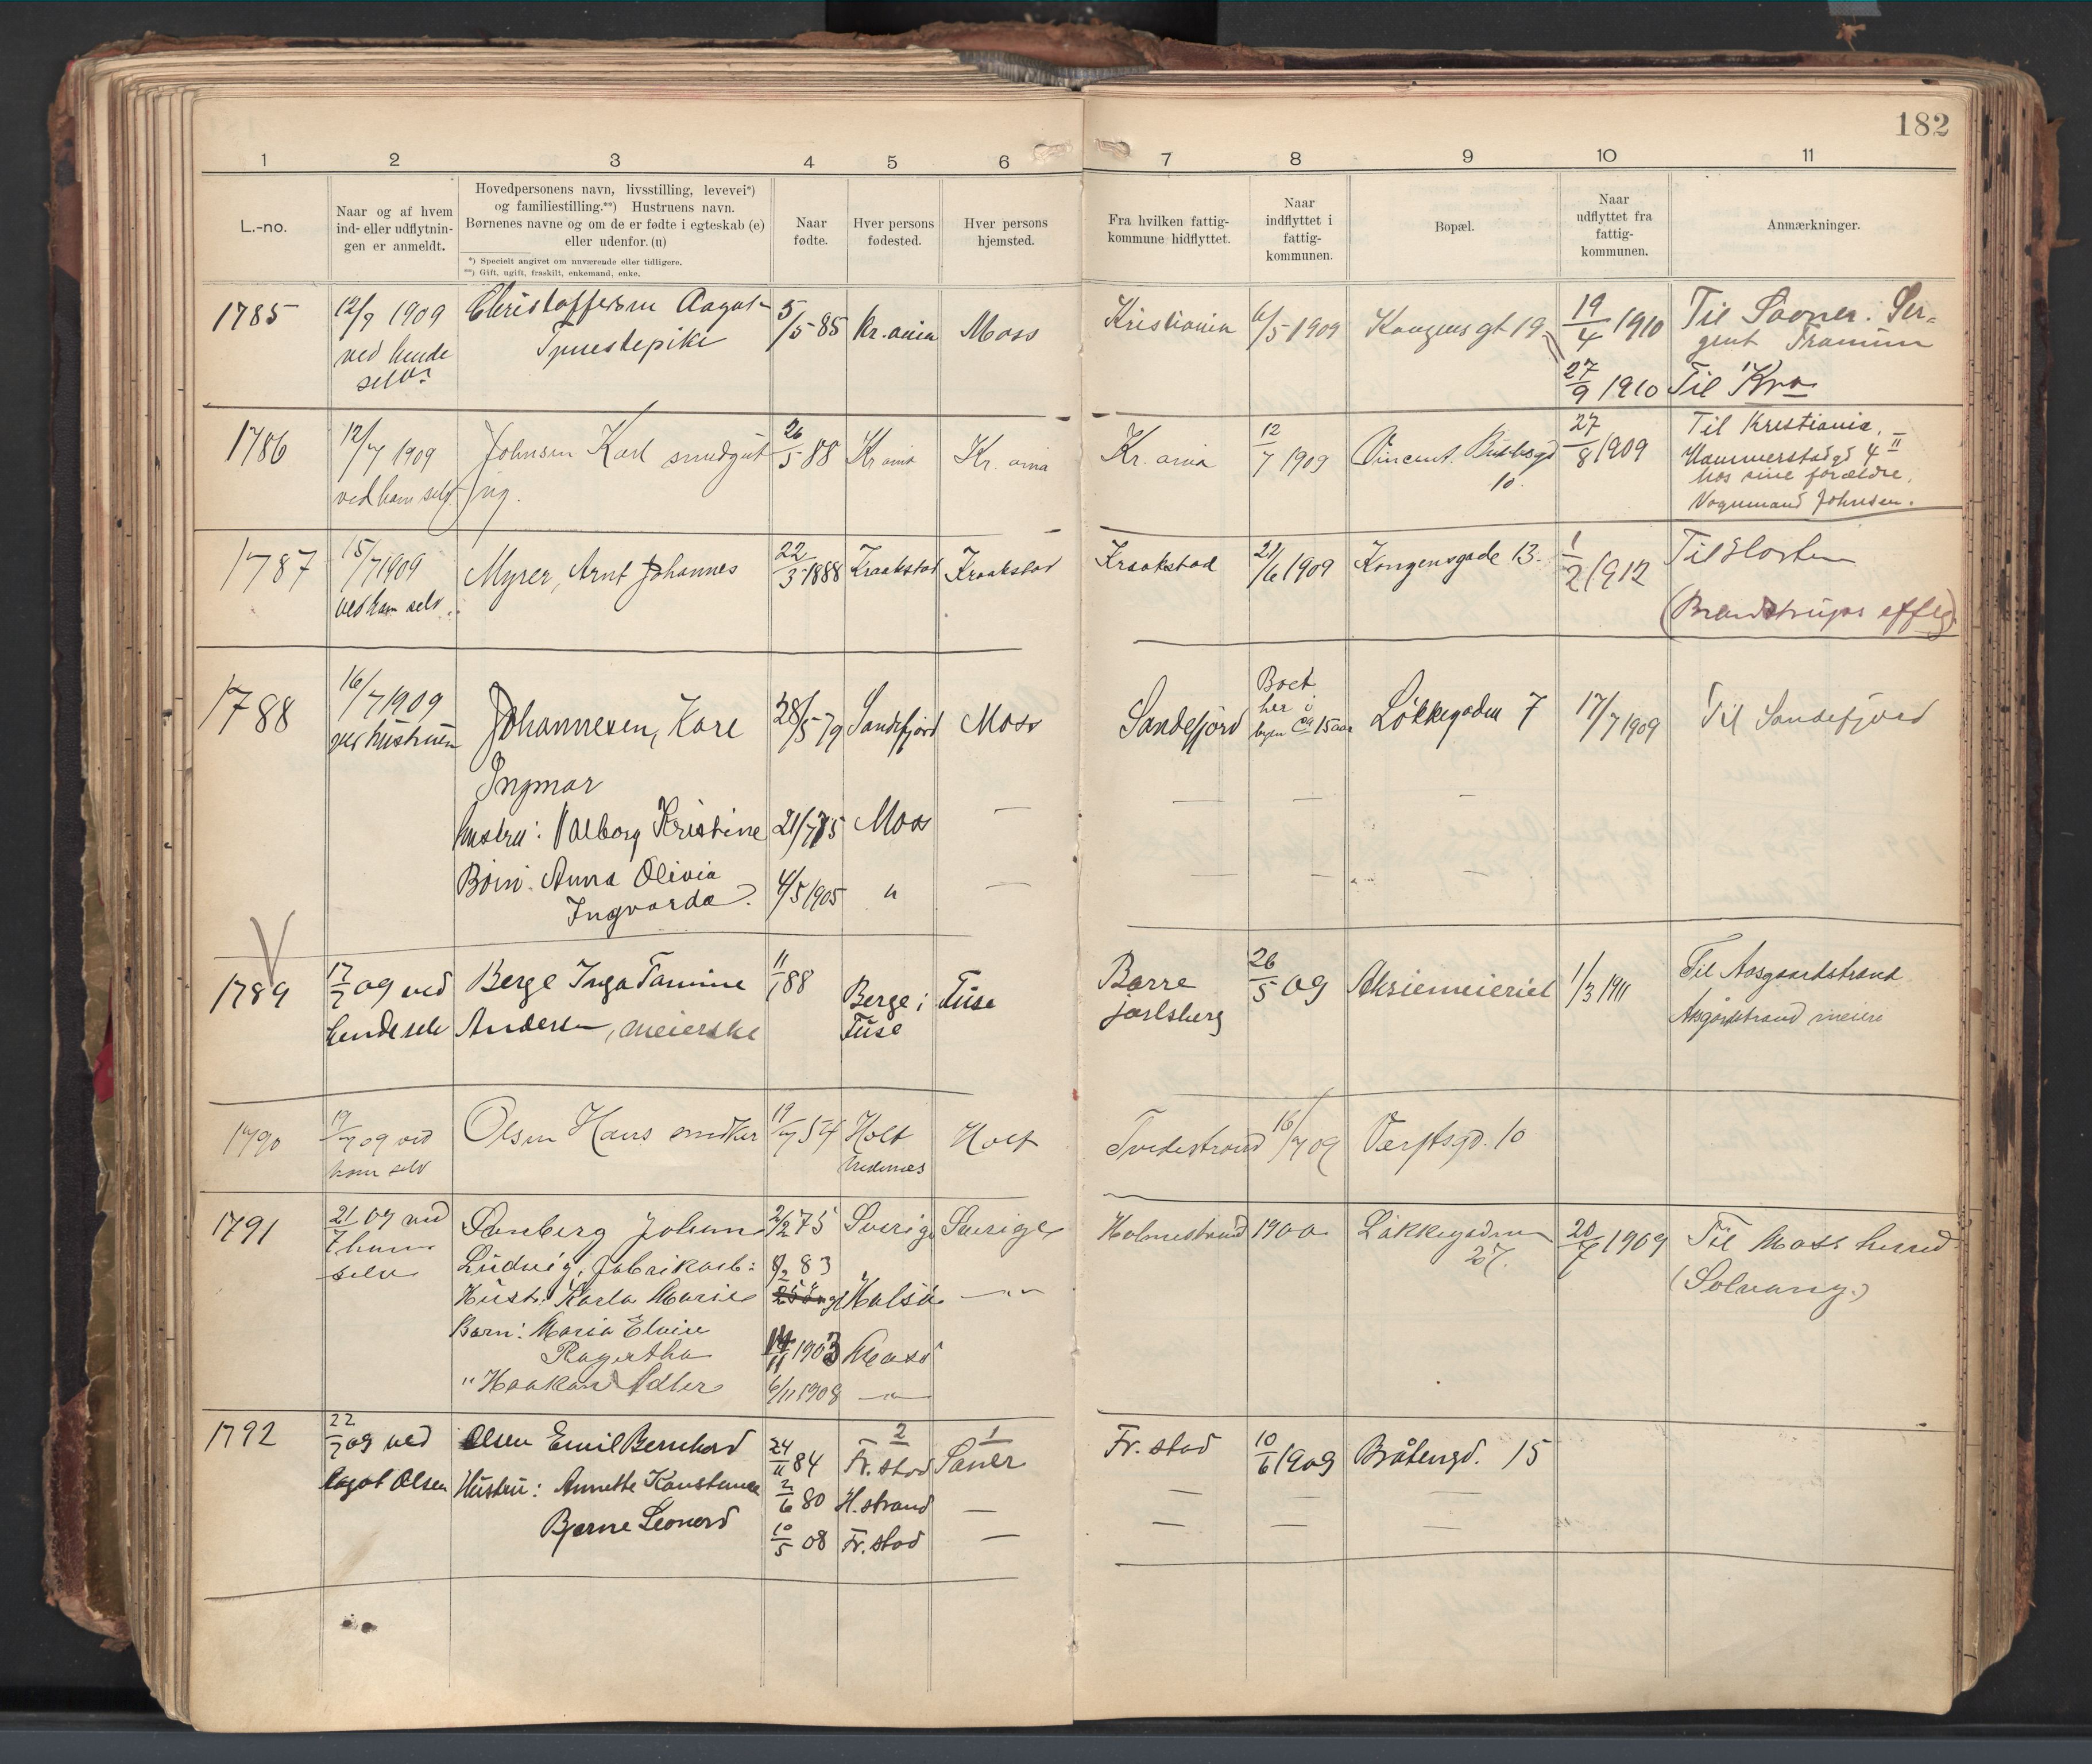 182
1 2 3 4 5 6 7 8 9 10 11
L.-no.
Naar og af hvem
ind- eller udflytnin-
gen er anmeldt.
Hovedpersonens navn, livsstilling, levevei*)
og familiestilling.**) Hustruens navn.
Børnenes navne og om de er fødte i egteskab (e)
eller udenfor. (u)
*) Specielt angivet om nuværende eller tidligere.
**) Gift, ugift, fraskilt, enkemand, enke.
Naar
fødte.
Hver persons
fødested.
Hver persons
hjemsted.
Fra hvilken fattig-
kommune hidflyttet.
Naar
indflyttet i
fattig-
kommunen.
Bopæl.
Naar
udflyttet fra
fattig-
kommunen.
Anmærkninger.
1785
12/7 1909
ved hende
selv
Christoffersen Aagot
Tjenestepike
5/5 85
Kr.ania
Moss
Kristiania
6/5 1909
Kongens gt 19
19/4 1910
Til Soner. Ser-
gent
27/9 1910
Til Kra
1786
12/7 1909
ved ham selv.
Johnsen Karl smedgut
ug.
26/5 88
Kr ania
Kr. ania
Kr. ania
12/7 1909
Vincent Bubbsgd
10.
27/8 1909
Til Kristiania,
Hammerstadgd 4 II
hos sine forældre,
Vognmand Johnsen.
1787
15/7 1909
ved ham selv.
Myrer, Arnt Johannes
22/3 1888
Kraakstad
Kraakstad
Kraakstad
21/6 1909
Kongensgade 13.
1/2 1912
Til Horten
(Brandstrups efflg)
1788
16/7 1909
ved hustruen
Johannesen, Kare
Ingmar
28/5 79
Sandefjord
Moss
Sandefjord
Boet
her i
byen ca 15 aar
Løkkegaden 7
17/7 1909
Til Sandefjord
hustru: Valborg Kristine
21/7 85
Moss
—
— — —
Børn: Anna Olivia
Ingvarda.
4/5 1905
"
—
— — —
1789
17/7 09 ved
hende selv
Berge Inga Tamine
Andersen, meierske
11/1 88
Berge i
Fuse
Fuse
Borre
Jarlsberg
26/5 09
Aksiemeieriet
1/3 1911
Til Aasgaardstrand
Åsgårdstrand meieri
1790
19/7 09 ved
ham selv
Olsen Hans snedker
19/7 54
Holt
Nedenes
Holt
Tvedestrand
16/7 09
Verftsgd. 10
1791
21/7 09 ved
ham
selv
Sanberg Johan
Ludvig, fabrikarb:
2/2 75
Sverige
Sverige
Holmestrand
1900
Løkkegaden
27.
20/7 1909
Til Moss herred
(Solvang.)
Hustr. Karla Marie
8/2 83
—"—
Barn: Maria Elvire
Ragertha
14/11 1903
Moss
" Haakon Adler
6/11 1908
—"—
1792
22/7 09 ved
Aagot Olsen
Olsen Emil Bernhard
24/11 84
2
Fr. stad
1
Saner
Fr. stad
10/6 1909
Bråtengd. 15
Hustru: Annette Konstanse
2/6 80
H. strand
—
— — —
Bjarne Leonard
10/5 08
Fr. stad
—
— — —